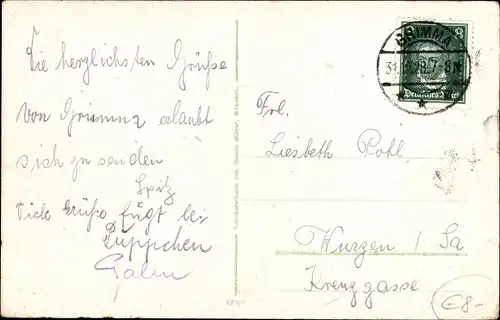 Die herzlichsten Grüße
von Grimma erlaubt
sich zu senden
Spitz
Viele Grüße fügt bei
Püppchen
GRIMMA
8
Deutsches Reich
Frl.
Liesbeth Pohl
Wurzen / Sa
Kreuzgasse
€8-